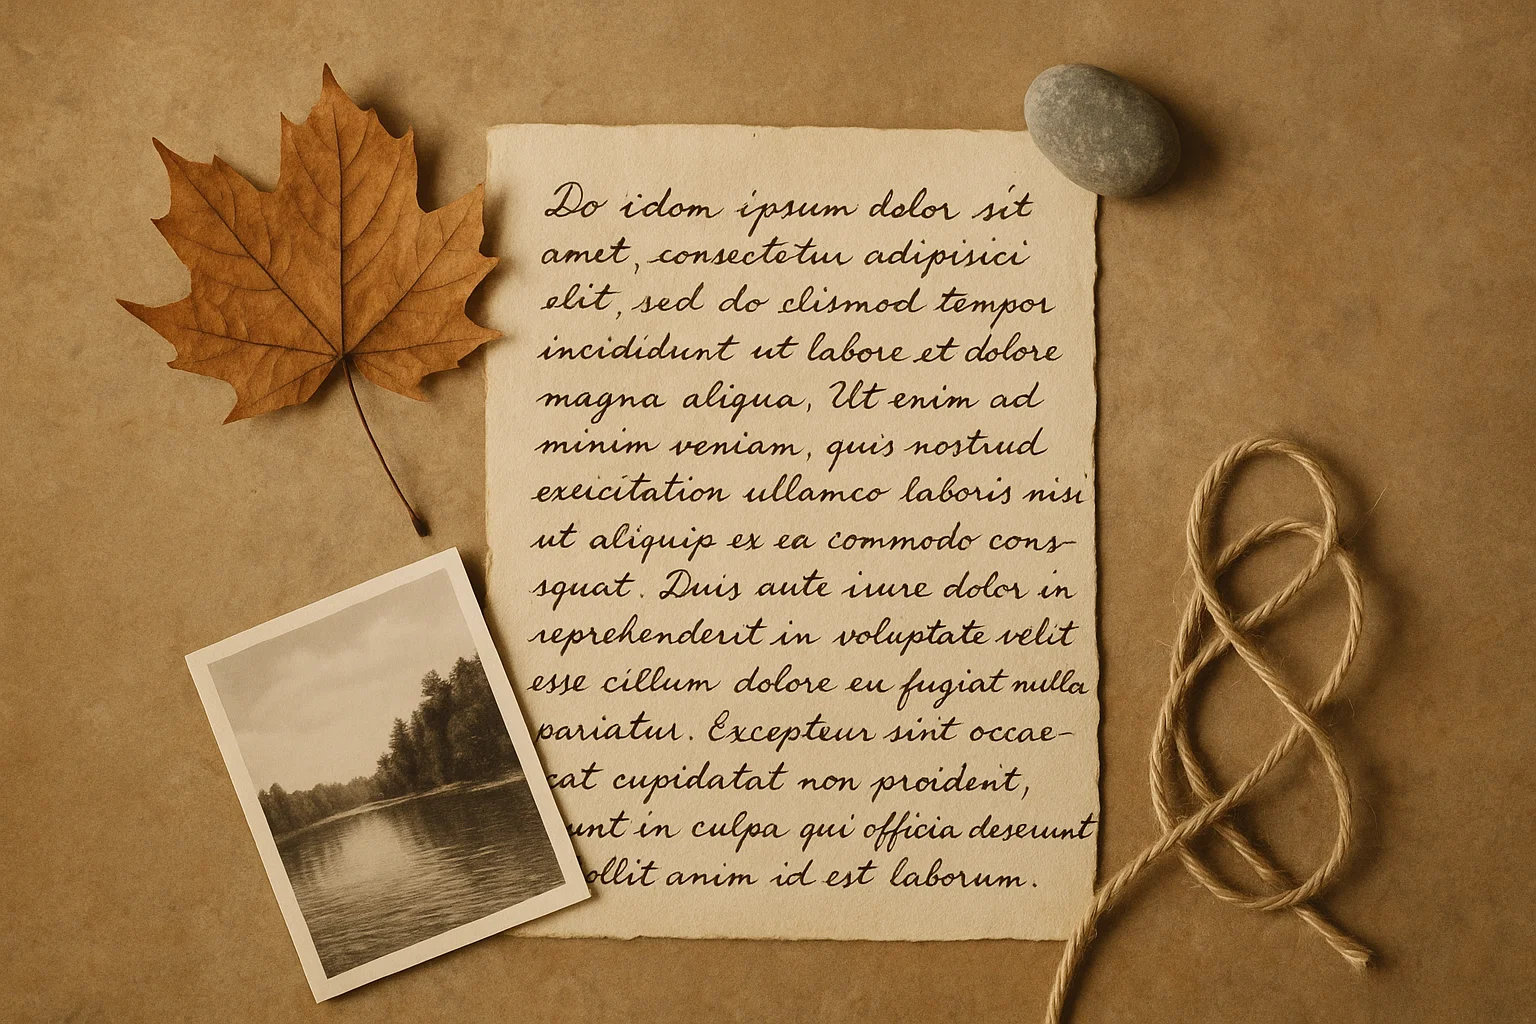 Do idom ipsum dolor sit
amet, consectetur adipisici
elit, sed do elismod tempor
incididunt ut labore et dolore
magna aliqua, Ut enim ad
minim veniam, quis nostrud
exeicitation ullamco laboris nisi
ut aliquip ex ea commodo cons-
squat. Duis aute iuure dolor in
reprehenderit in voluptate velit
esse cillum dolore eu fugiat nulla
pariatur. Excepteur sint occae-
cat cupidatat non proident,
unt in culpa qui officia deserunt
ollit anim id est laborum.